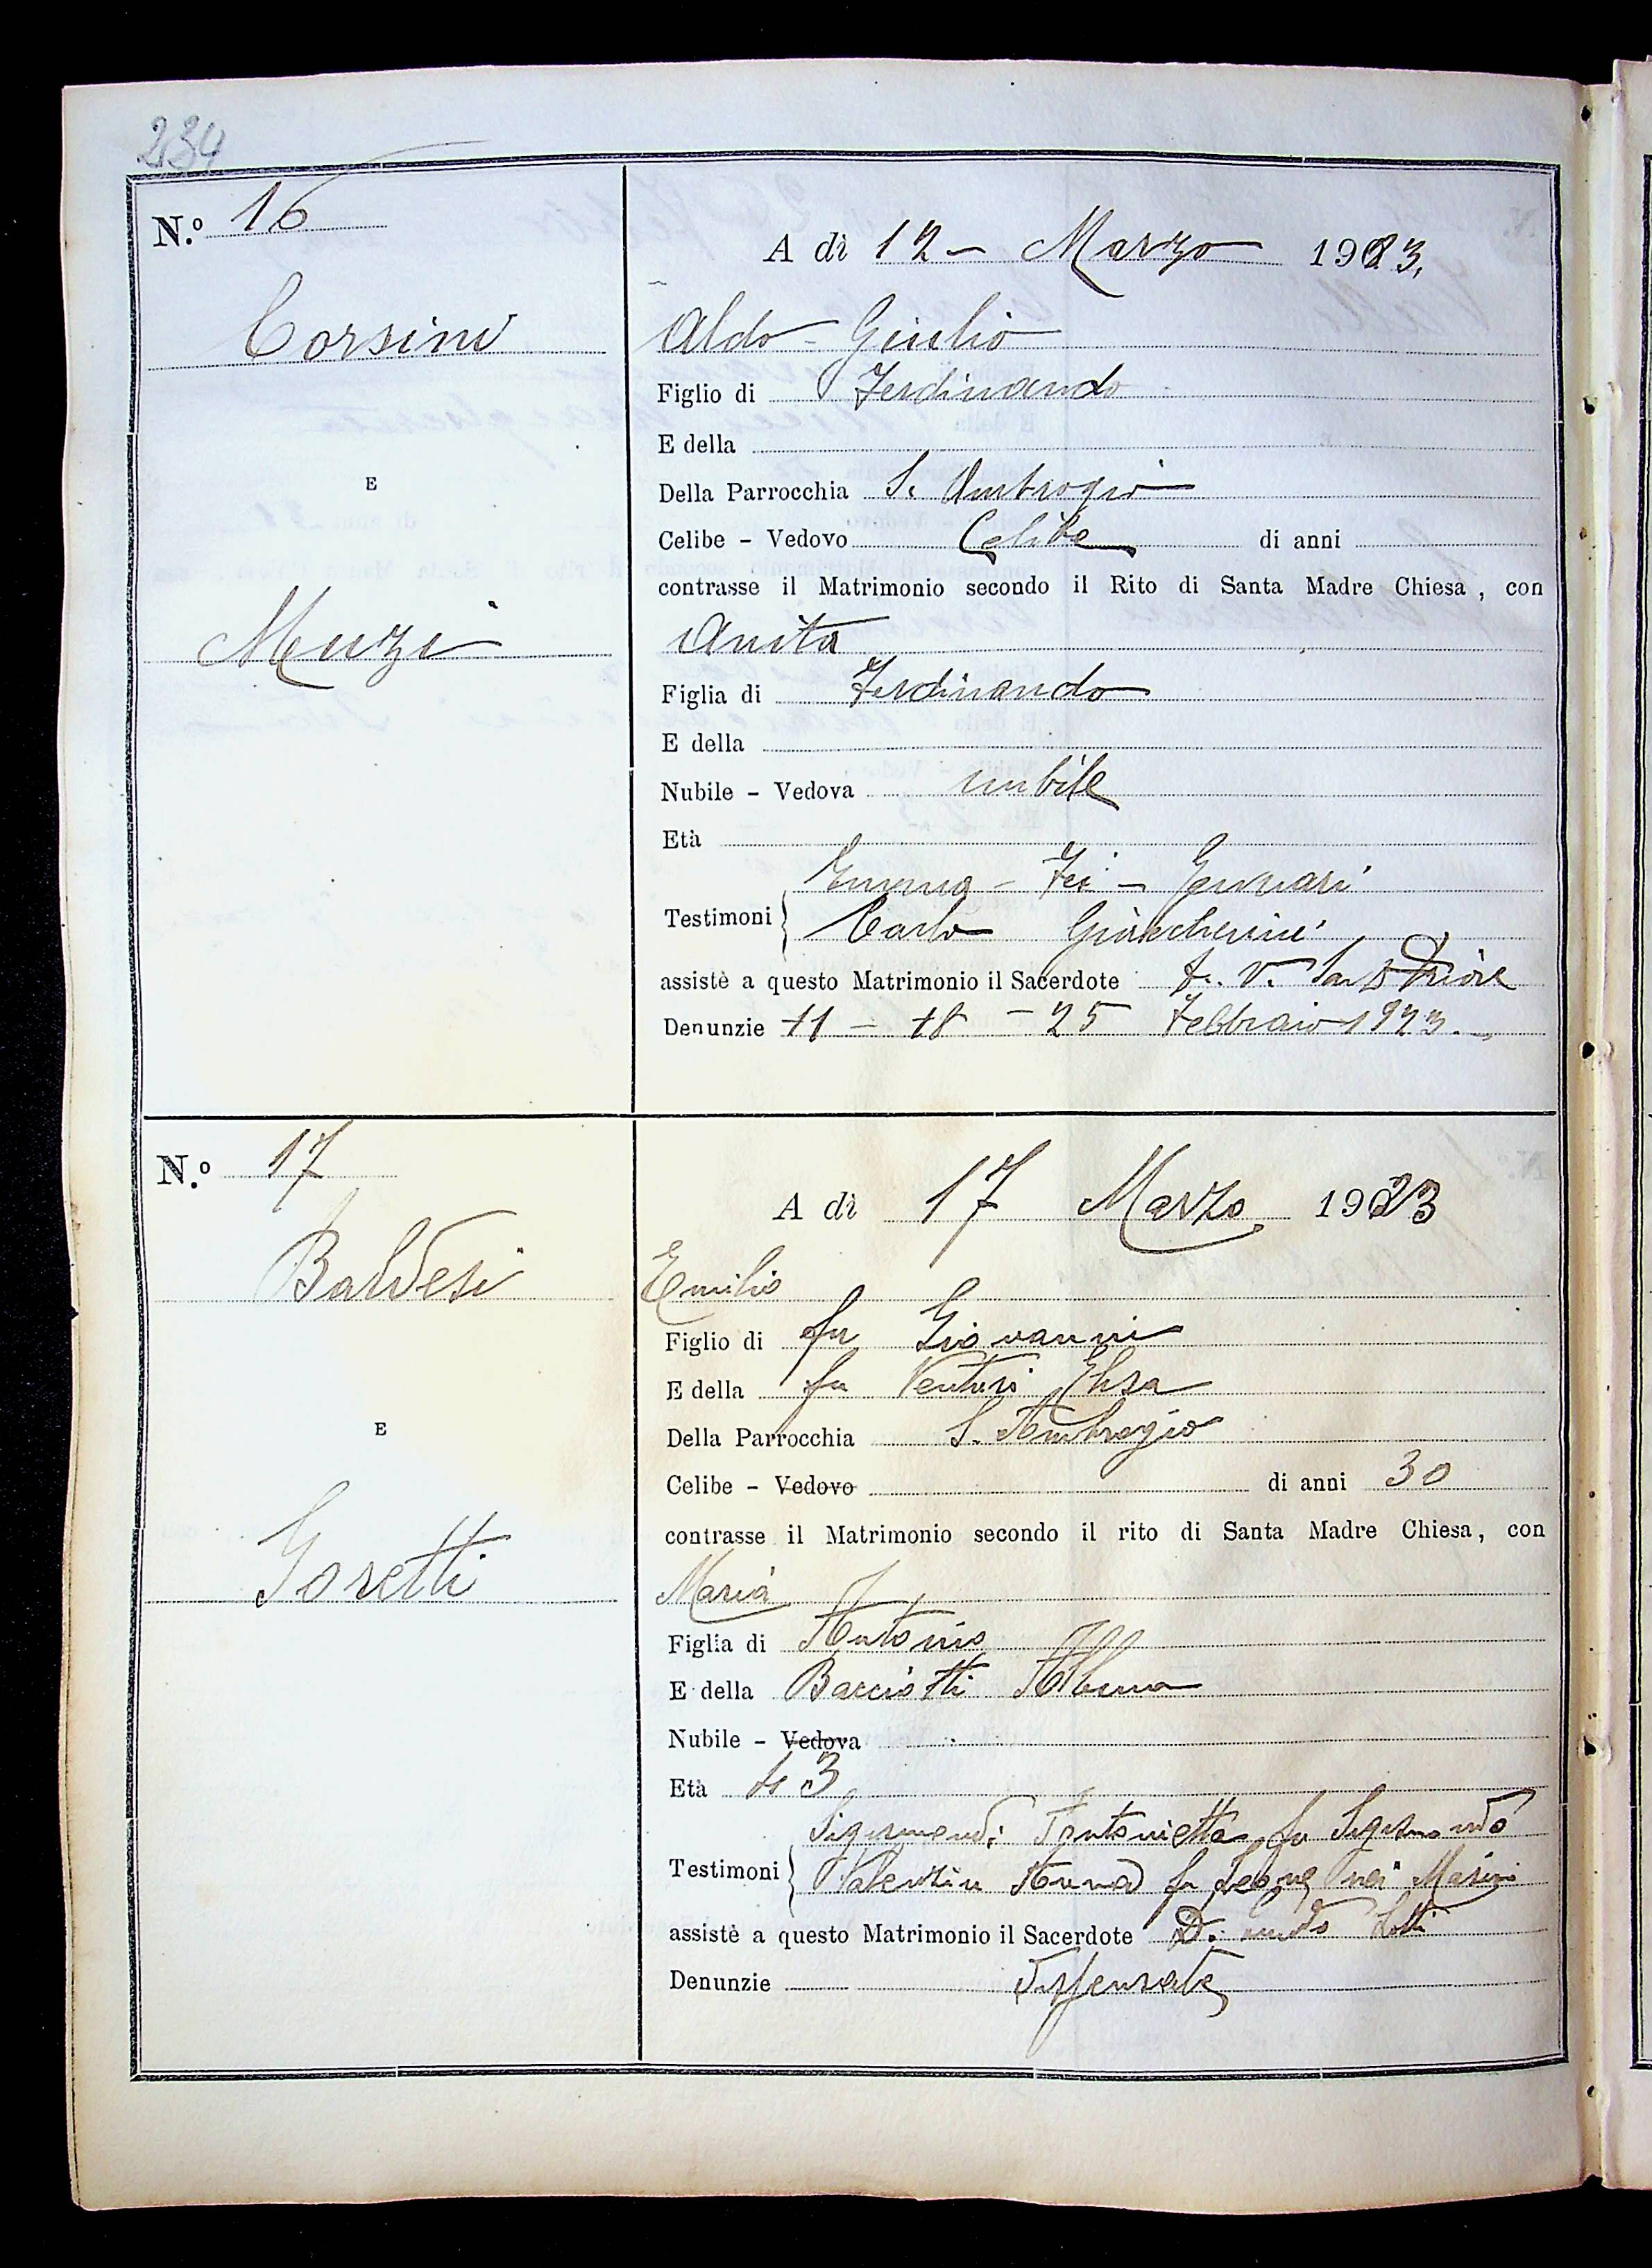 234
N.º 16
A dì 12 - Marzo 1923.
Corsini
Aldo - Giulio
Figlio di Ferdinando
E della
Della Parrocchia S. Ambrogio
E
Celibe - Vedovo Celibe di anni
contrasse il Matrimonio secondo il Rito di Santa Madre Chiesa, con
Muzi
Anita
Figlia di Ferdinando
E della
Nubile - Vedova nubile
Età
Emma - Fei - Gennari
Testimoni
Carlo Giuncherini
assistè a questo Matrimonio il Sacerdote Priore
Denunzie 11 - 18 - 25 Febbraio 1923.
N.º 17
A dì 17 Marzo 1923
Baldesi
Emilio
Figlio di fu Giovanni
E della fu Venturi Elisa
E
Della Parrocchia S. Ambrogio
Celibe - Vedovo di anni 30
contrasse il Matrimonio secondo il rito di Santa Madre Chiesa, con
Goretti
Maria
Figlia di Antonio
E della Barciotti Albina
Nubile - Vedova
Età 3
Sigismondi Antonietta fu Sigismondo
Testimoni
Valentini Anna fu Leone nei Masini
assistè a questo Matrimonio il Sacerdote D. Lotti
Denunzie Dispensate